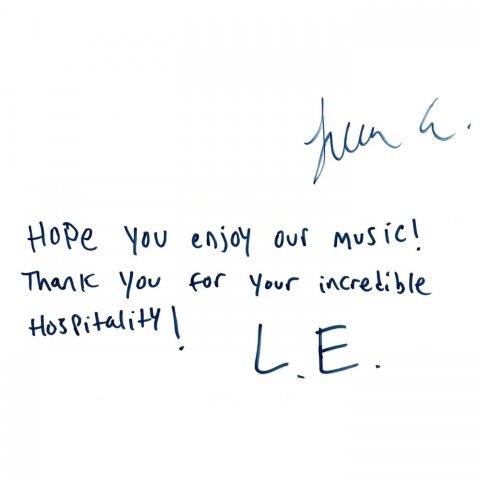 Hope you enjoy our music!
Thank you for your incredible
Hospitality!
L.E.